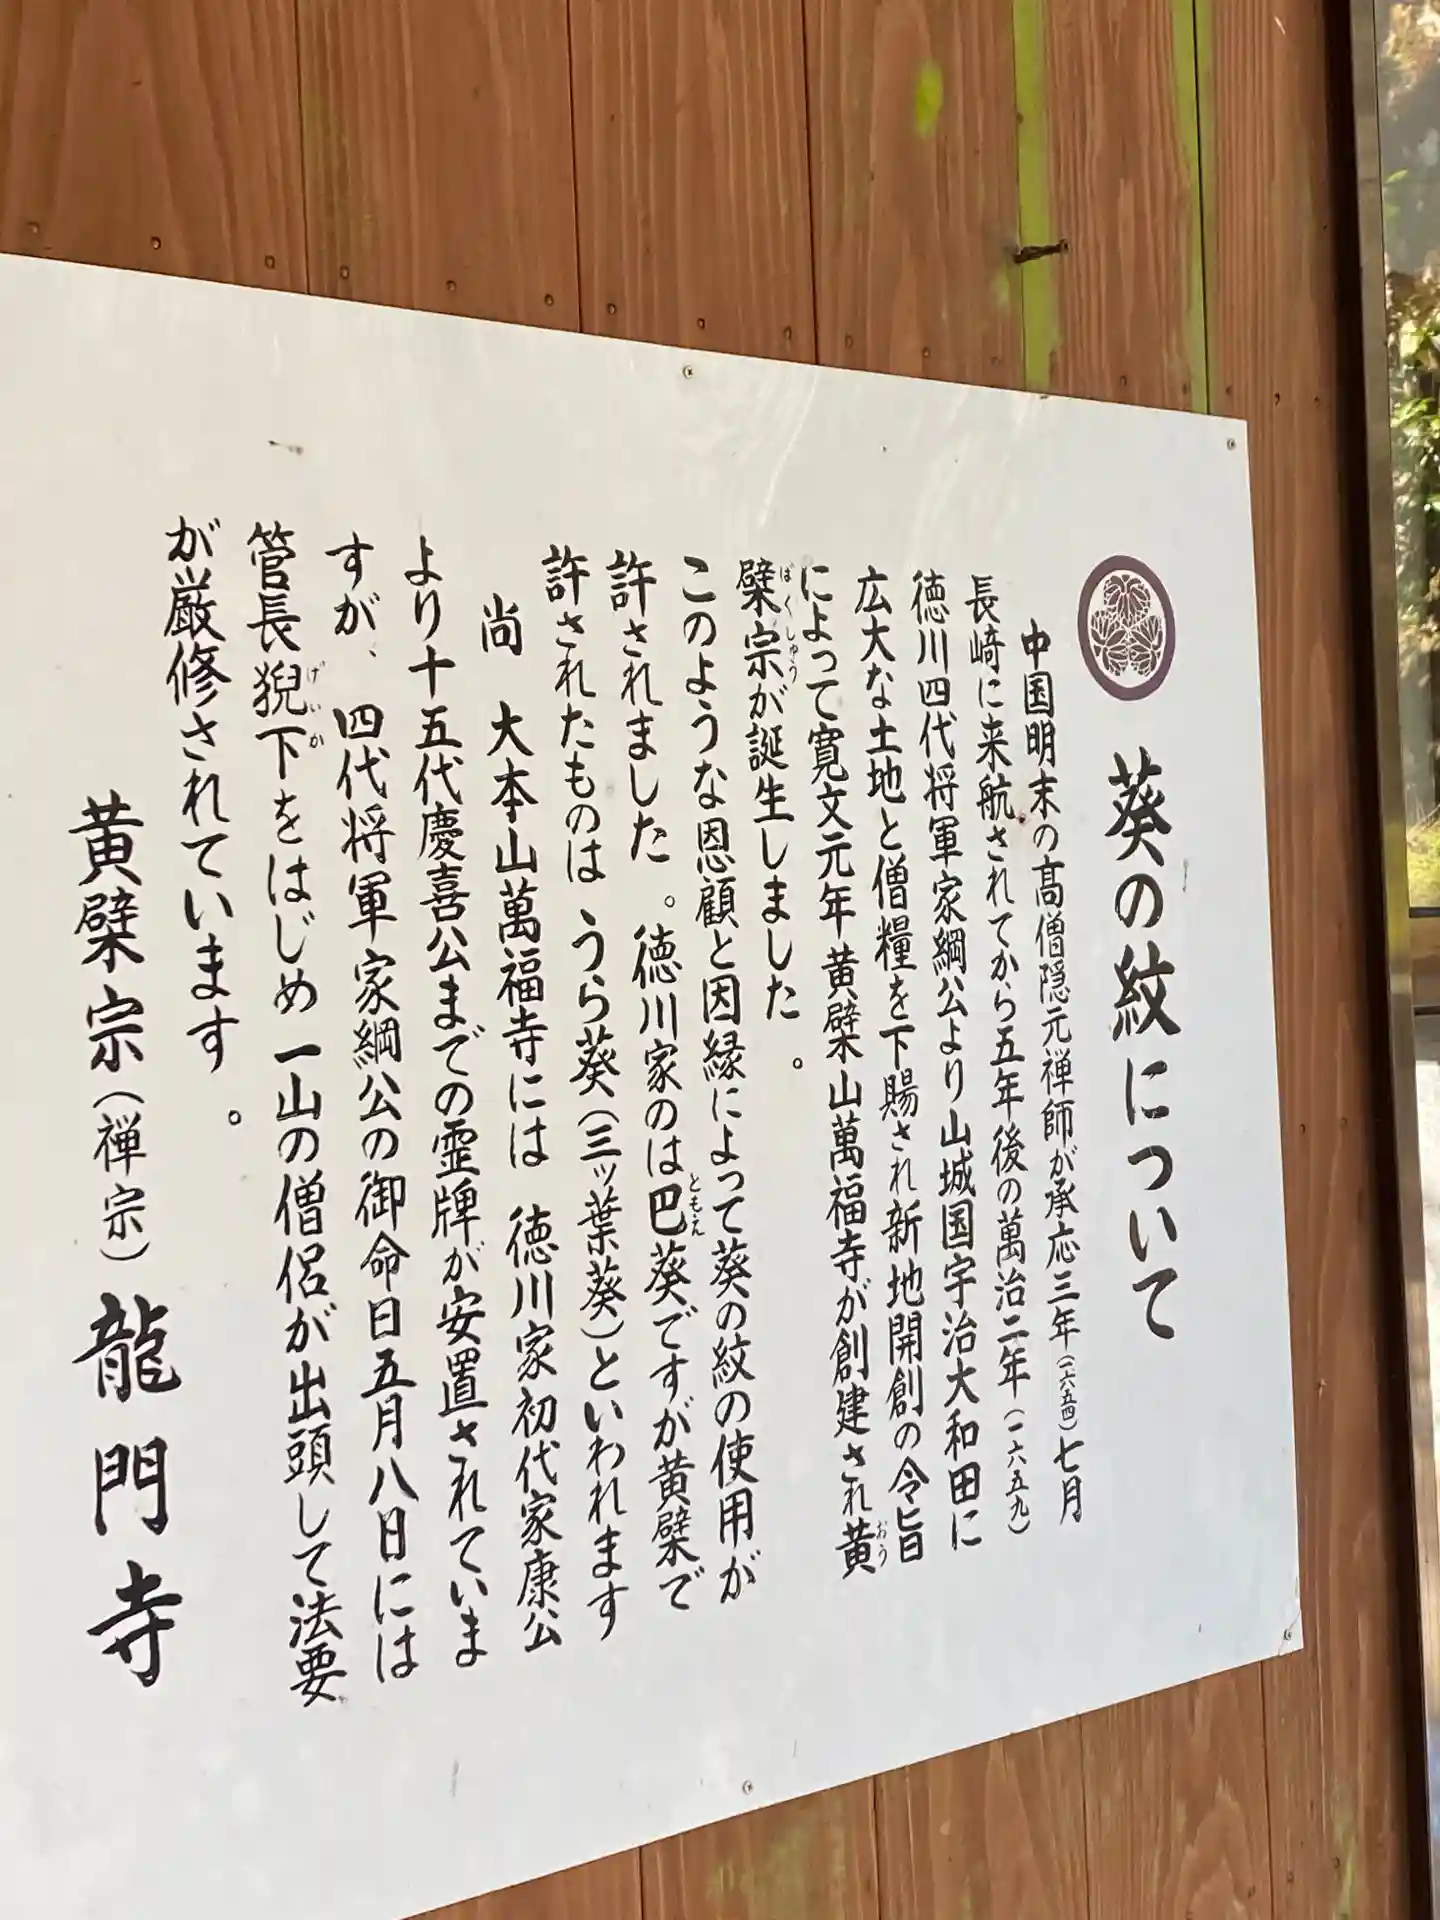 葵の紋について
中国明末の高僧隠元禅師が承応三年(一六五四)七月
長崎に来航されてから五年後の萬治二年(一六五九)
徳川四代将軍家綱公より山城国宇治大和田に
広大な土地と僧糧を下賜され新地開創の令旨
によって寛文元年 黄檗山萬福寺が創建され黄おう
檗宗ばくしゅうが誕生しました。
このような恩顧と因縁によって葵の紋の使用が
許されました。徳川家のは巴ともえ葵ですが黄檗で
許されたものは うら葵(三ッ葉葵)といわれます
尚 大本山萬福寺には 徳川家初代家康公
より十五代慶喜公までの霊牌が安置されていま
すが、四代将軍家綱公の御命日五月八日には
管長猊下げいかをはじめ 一山の僧侶が出頭して法要
が厳修されています。
黄檗宗(禅宗)龍門寺